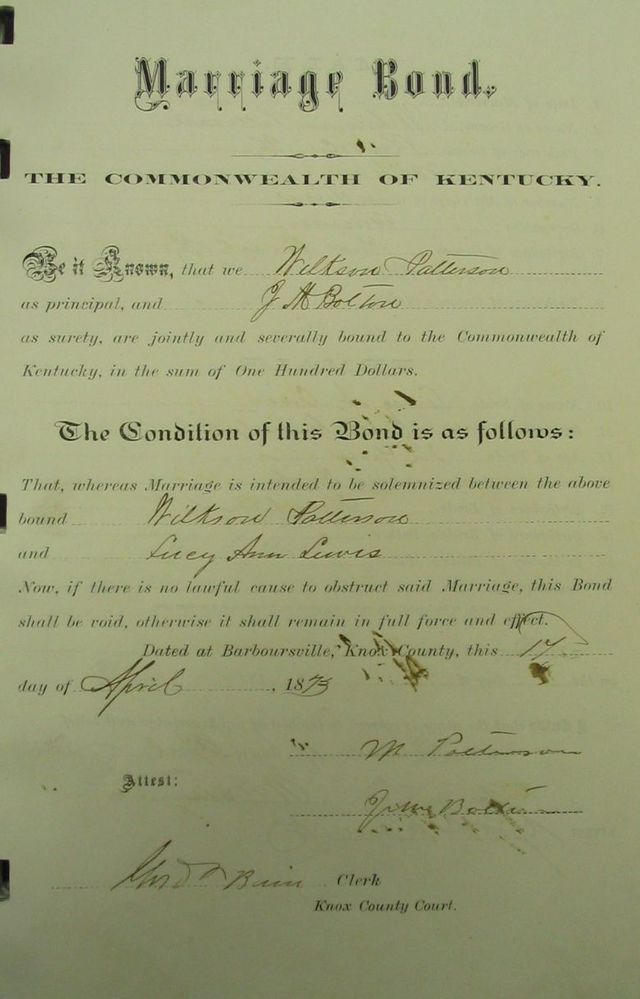 Marriage Bond.
THE COMMONWEALTH OF KENTUCKY.
Be it Known, that we Wilkson Patterson
as principal, and J A Bolton
as surety, are jointly and severally bound to the Commonwealth of
Kentucky, in the sum of One Hundred Dollars.
The Condition of this Bond is as follows:
That, whereas Marriage is intended to be solemnized between the above
bound Wilkson Patterson
and Lucy Ann Lewis
Now, if there is no lawful cause to obstruct said Marriage, this Bond
shall be void, otherwise it shall remain in full force and effect.
Dated at Barboursville, Knox County, this 17
day of April, 1873
Patterson
Attest:
Clerk
Knox County Court.